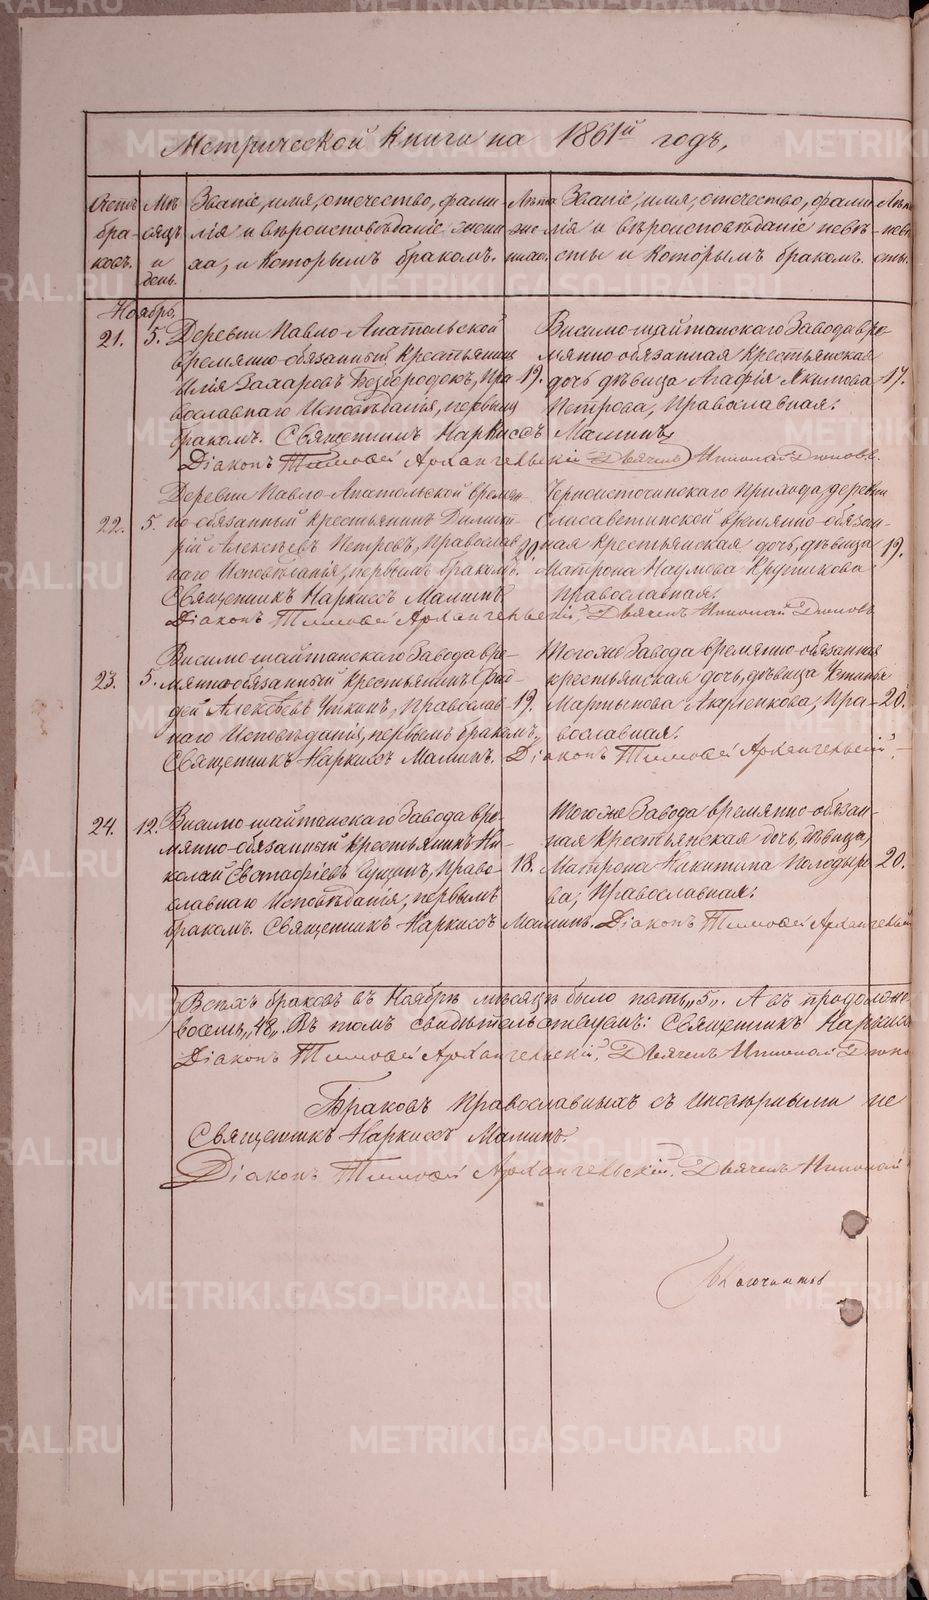 Метрической книги на 1861й годъ,
Счетъ браковъ.
Мѣсяцъ и день.
Званіе, имя, отечество, фамилія и вѣроисповѣданіе жениха, и которымъ бракомъ.
Лѣта жениха.
Званіе, имя, отечество, фамилія и вѣроисповѣданіе невѣсты и которымъ бракомъ.
Лѣта невѣсты.
Ноябрь,
21. 5. Деревни Павло-Анатольской
временно-обязанный крестьянинъ
Илія Захаровъ Безбородокъ, Пра-
вославнаго исповѣданія, первымъ
бракомъ. Священникъ Наркиссъ Маминъ
19.
Висимо-шайтанскаго Завода вре-
мянно обязанная крестьянская
дочь дѣвица Агафія Якимова
Петрова, Православная.
17.
Діаконъ Тимофей Архангельскій Дьячекъ Николай Дюковъ.
22. 5. Деревни Павло-Анатольской времен-
но-обязанный крестьянинъ Дими-
рій Алексѣевъ Петровъ, Православ-
наго Исповѣданія, первымъ бракомъ.
Священникъ Наркиссъ Маминъ
20.
Черноисточинскаго Прихода, деревни
Елисаветинской временно-обязан-
ная крестьянская дочь, дѣвица
Матрона Наумова Кругликова
Православная.
19.
Діаконъ Тимофей Архангельскій, Дьячекъ Николай Дюковъ
23. 5. Висимо-шайтанскаго Завода вре-
мянно-обязанный крестьянинъ Фад-
дей Алексѣевъ Уткинъ, Православ-
наго Исповѣданія, первымъ бракомъ,
Священникъ Наркиссъ Маминъ.
19.
Того же Завода времянно-обязанная
крестьянская дочь, дѣвица Устинья
Мартынова Православная.
20.
Діаконъ Тимофей Архангельскій,
24. 12. Висимо-шайтанскаго Завода вре-
мянно-обязанный крестьянинъ Ни-
колай Евстафіевъ Право-
славнаго Исповѣданія, первымъ
бракомъ. Священникъ Наркиссъ Маминъ. Діаконъ Тимофей Архангельскій
18.
Того же Завода времянно-обязан-
ная крестьянская дочь, дѣвица,
Матрона Никитина
ва, Православная.
20.
Всѣхъ браковъ въ Ноябрѣ мѣсяцѣ было пять „5„. А въ продолже
восемь „48„. Въ томъ свидѣтельствуемъ: Священникъ Наркиссъ
Діаконъ Тимофей Архангельскій, Дьячекъ Николай Дюко
Браковъ православныхъ съ иновѣрными не
Священникъ Наркиссъ Маминъ.
Діаконъ Тимофей Архангельскій. Дьячекъ Николай
METRIKI.GASO-URAL.RU